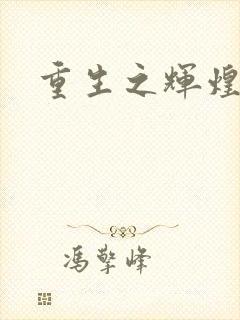 重生之輝煌
馮擎峰